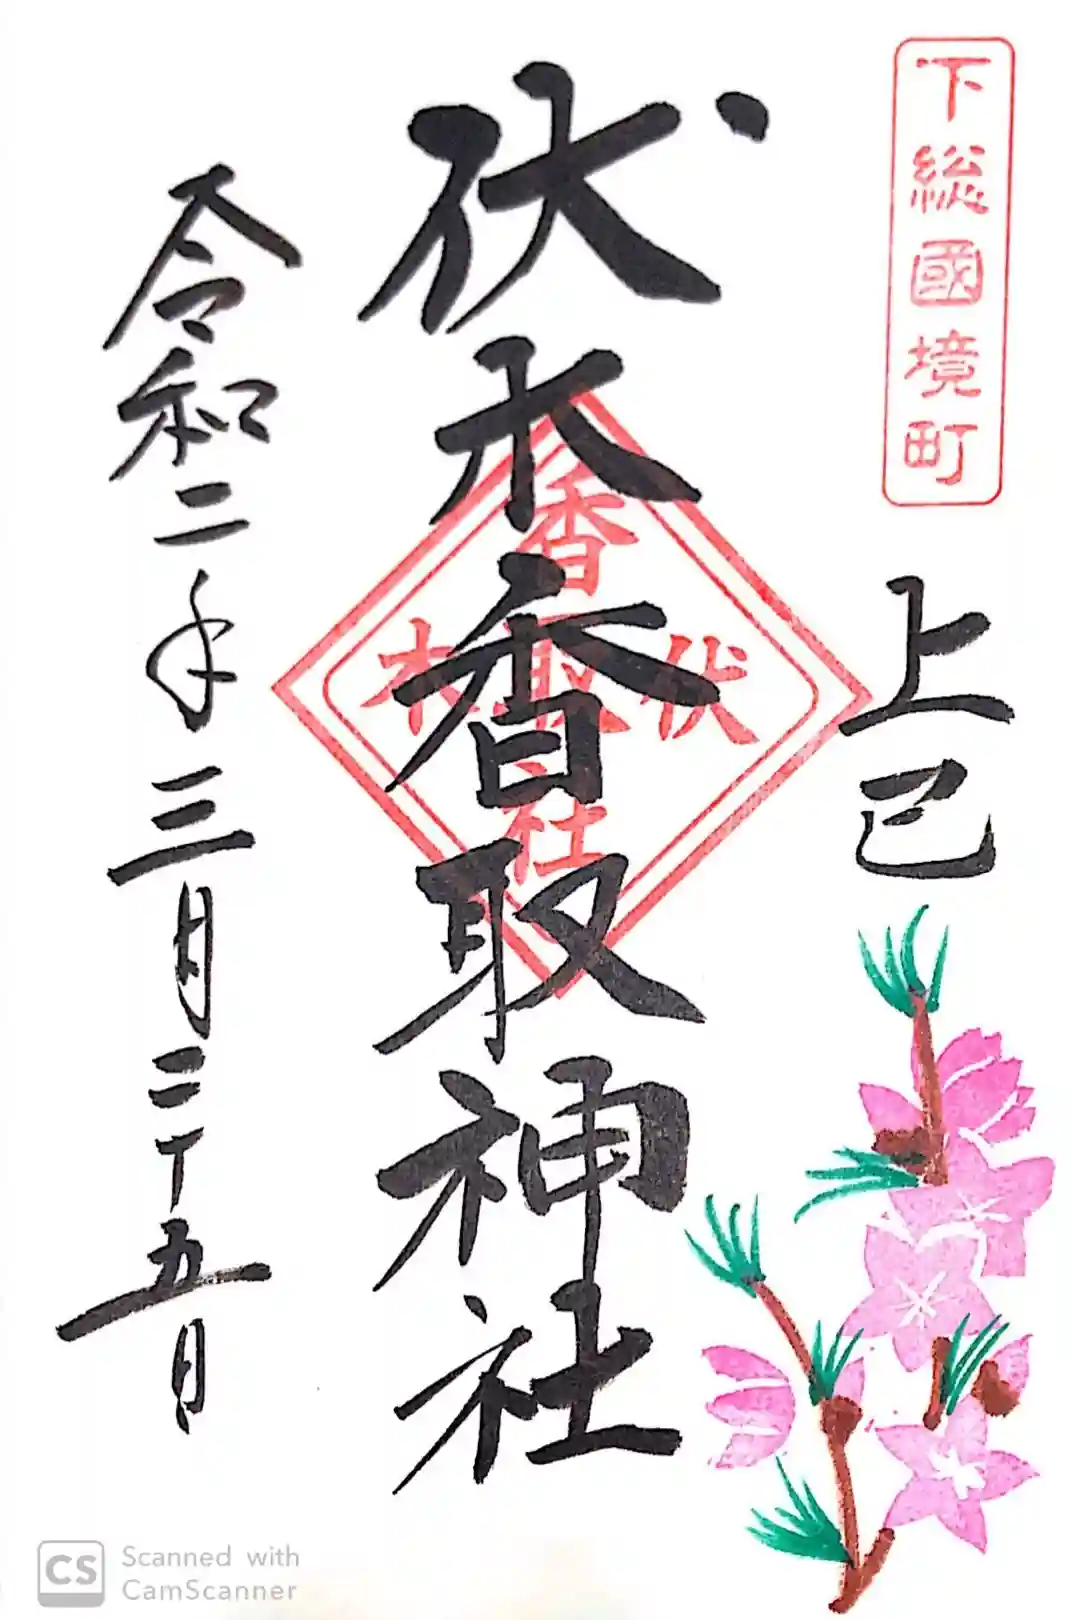 下総國境町
上巳
伏木香取神社
伏木
香取社
令和二年三月二十五日
CS Scanned with
CamScanner